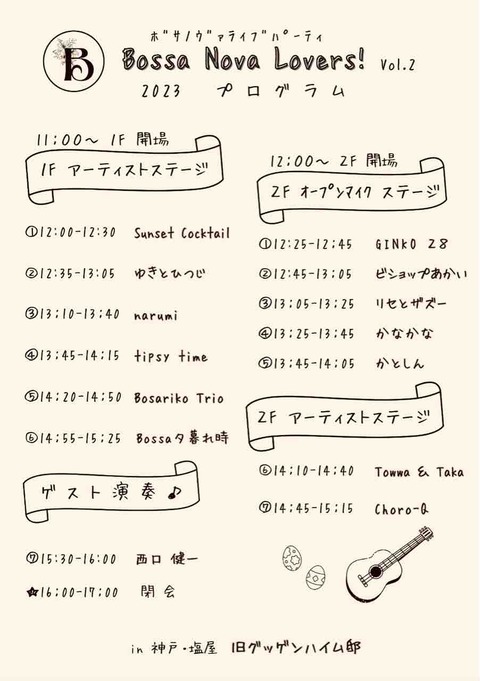 ボサノヴァライブパーティ
B
Bossa Nova Lovers! Vol.2
2023 プログラム
11:00〜 1F 開場
1F アーティストステージ
①12:00-12:30 Sunset Cocktail
②12:35-13:05 ゆきとひつじ
③13:10-13:40 narumi
④13:45-14:15 tipsy time
⑤14:20-14:50 Bosariko Trio
⑥14:55-15:25 Bossa夕暮れ時
ゲスト演奏♪
⑦15:30-16:00 西口 健一
★16:00-17:00 閉会
12:00〜 2F 開場
2F オープンマイク ステージ
①12:25-12:45 GINKO 28
②12:45-13:05 ビショップあかい
③13:05-13:25 リセとザズー
④13:25-13:45 かなかな
⑤13:45-14:05 かとしん
2F アーティストステージ
⑥14:10-14:40 Towwa & Taka
⑦14:45-15:15 Choro-Q
in 神戸・塩屋 旧グッゲンハイム邸